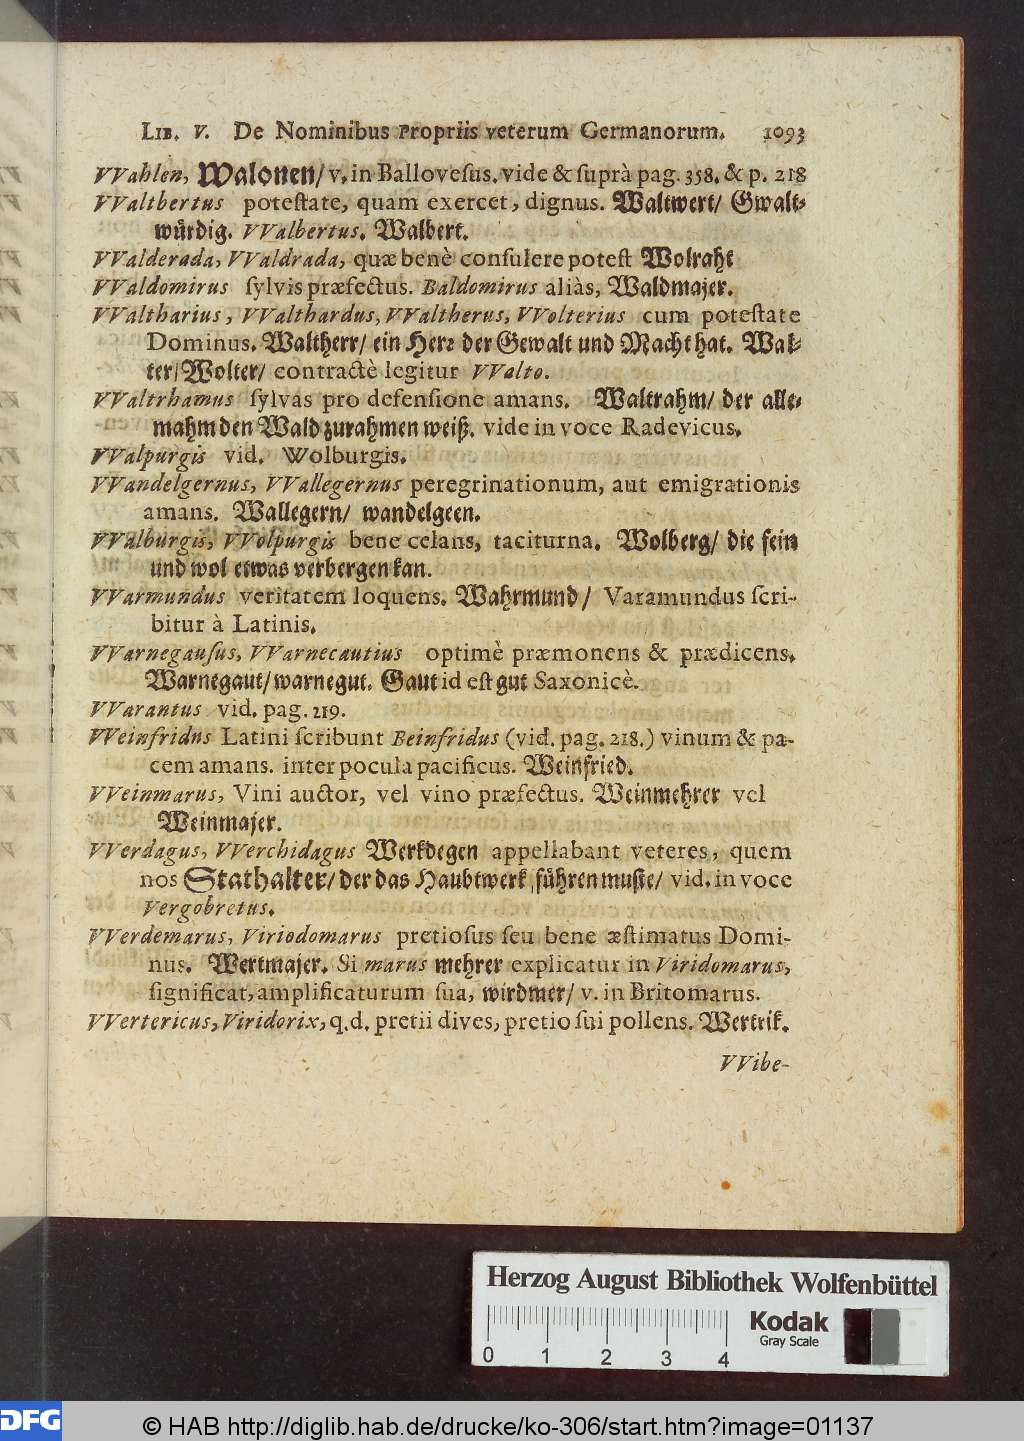 LIB. V. De Nominibus Propriis veterum Germanorum. 1093
VVahlen, Walonen/ v. in Ballovesus. vide & suprà pag. 358. & p. 218
VValtbertus potestate, quam exercet, dignus. Waltwert/ Gwalt-
würdig. VValbertus. Walbert.
VValderada, VValdrada, quæ benè consulere potest Wolraht
VValdomirus sylvis præfectus. Baldomirus aliàs, Waldmajer.
VValtharius, VValthardus, VValtherus, VVolterius cum potestate
Dominus. Waltherr/ ein Herr der Gewalt und Macht hat. Wal-
ter/ Wolter/ contractè legitur VValto.
VValtrhamus sylvas pro defensione amans. Waltrahm/ der alle-
mahm den Wald zurahmen weiß. vide in voce Radevicus.
VValpurgis vid. Wolburgis.
VVandelgernus, VVallegernus peregrinationum, aut emigrationis
amans. Wallegern/ wandelgeen.
VValburgis, VVolpurgis bene celans, taciturna. Wolberg/ die fein
und wol etwas verbergen kan.
VVarmundus veritatem loquens. Wahrmund/ Varamundus scri-
bitur à Latinis.
VVarnegausus, VVarnecautius optimè præmonens & prædicens.
Warnegaut/ warnegut. Gaut id est gut Saxonicè.
VVarantus vid. pag. 219.
VVeinfridns Latini scribunt Beinfridus (vid. pag. 218.) vinum & pa-
cem amans. inter pocula pacificus. Weinfried.
VVeinmarus, Vini auctor, vel vino præfectus. Weinmehrer vel
Weinmajer.
VVerdagus, VVerchidagus Werkdegen appellabant veteres, quem
nos Stathalter/ der das Haubtwerk führen muste/ vid. in voce
Vergobretus.
VVerdemarus, Viriodomarus pretiosus seu bene æstimatus Domi-
nus. Wertmajer. Si marus mehrer explicatur in Viridomarus,
significat, amplificaturum sua, wirdmer/ v. in Britomarus.
VVertericus, Viridorix, q.d. pretii dives, pretio sui pollens. Wertrik.
VVibe-
Herzog August Bibliothek Wolfenbüttel
0 1 2 3 4
Kodak
Gray Scale
DFG
© HAB http://diglib.hab.de/drucke/ko-306/start.htm?image=01137